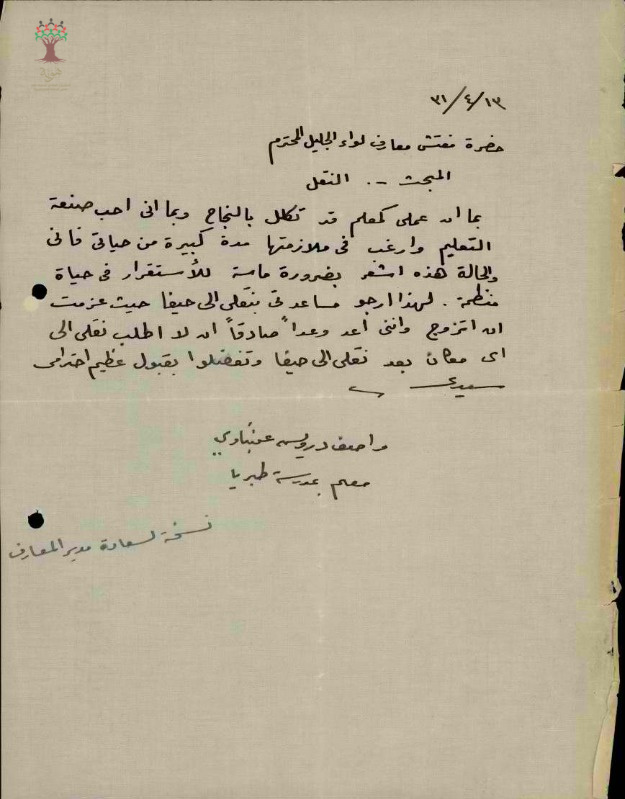 ٣١/٤/١٣
حضرة مفتش معارف لواء الجليل المحترم
المبحث -. النقل
بما ان عملي كمعلم قد تكلل بالنجاح وبما اني احب صنعة
التعليم وارغب في ملازمتها مدة كبيرة من حياتي فاني
والحالة هذه اشعر بضرورة ماسة للأستقرار في حياة
منظمة. لهذا ارجو مساعدتي بنقلي الى حيفا حيث عزمت
ان اتزوج وانني اعد وعداً صادقاً ان لا اطلب نقلي الى
اى مكان بعد نقلي الى حيفا وتفضلوا بقبول عظيم احترامى
سيدي
درويش عنبتاوي
معلم بمدرسة طبريا
نسخة لسعادة مدير المعارف